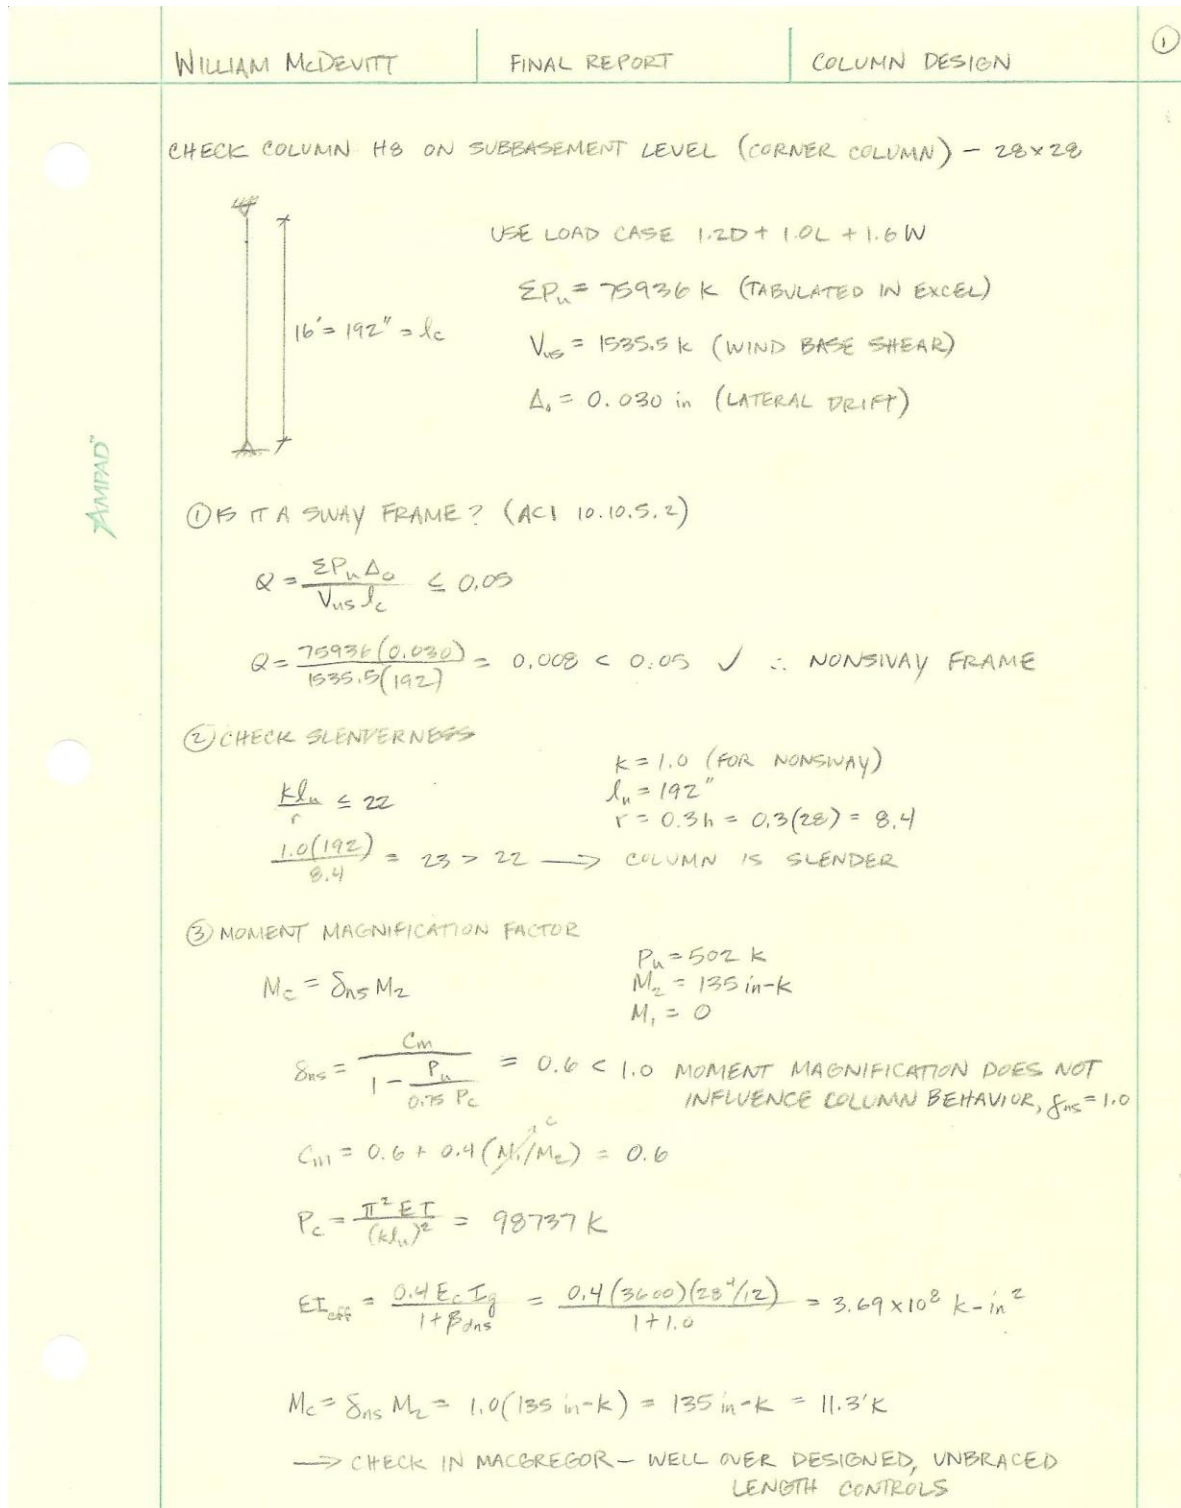 WILLIAM McDEVITT FINAL REPORT COLUMN DESIGN ①
CHECK COLUMN H8 ON SUBBASEMENT LEVEL (CORNER COLUMN) - 28×28
USE LOAD CASE 1.2D + 1.0L + 1.6W
ΣPu = 75936 K (TABULATED IN EXCEL)
16' = 192" = lc
Vus = 1535.5 k (WIND BASE SHEAR)
Δo = 0.030 in (LATERAL DRIFT)
AMPAD™
① IS IT A SWAY FRAME? (ACI 10.10.5.2)
Q = ΣPuΔo / Vus lc ≤ 0.05
Q = 75936(0.030) / 1535.5(192) = 0.008 < 0.05 ✓ ∴ NONSWAY FRAME
② CHECK SLENDERNESS
k = 1.0 (FOR NONSWAY)
klu / r ≤ 22
lu = 192"
r = 0.3h = 0.3(28) = 8.4
1.0(192) / 8.4 = 23 > 22 → COLUMN IS SLENDER
③ MOMENT MAGNIFICATION FACTOR
Pu = 502 k
Mc = δns M2
M2 = 135 in-k
M1 = 0
δns = Cm / (1 - Pu / 0.75 Pc) = 0.6 < 1.0 MOMENT MAGNIFICATION DOES NOT
INFLUENCE COLUMN BEHAVIOR, δns = 1.0
Cm = 0.6 + 0.4 (M1/M2) = 0.6
Pc = π²EI / (klu)² = 98737 K
EIeff = 0.4 Ec Ig / 1 + βdns = 0.4(3600)(28⁴/12) / 1 + 1.0 = 3.69×10⁸ k-in²
Mc = δns M2 = 1.0(135 in-k) = 135 in-k = 11.3'k
→ CHECK IN MACGREGOR - WELL OVER DESIGNED, UNBRACED
LENGTH CONTROLS